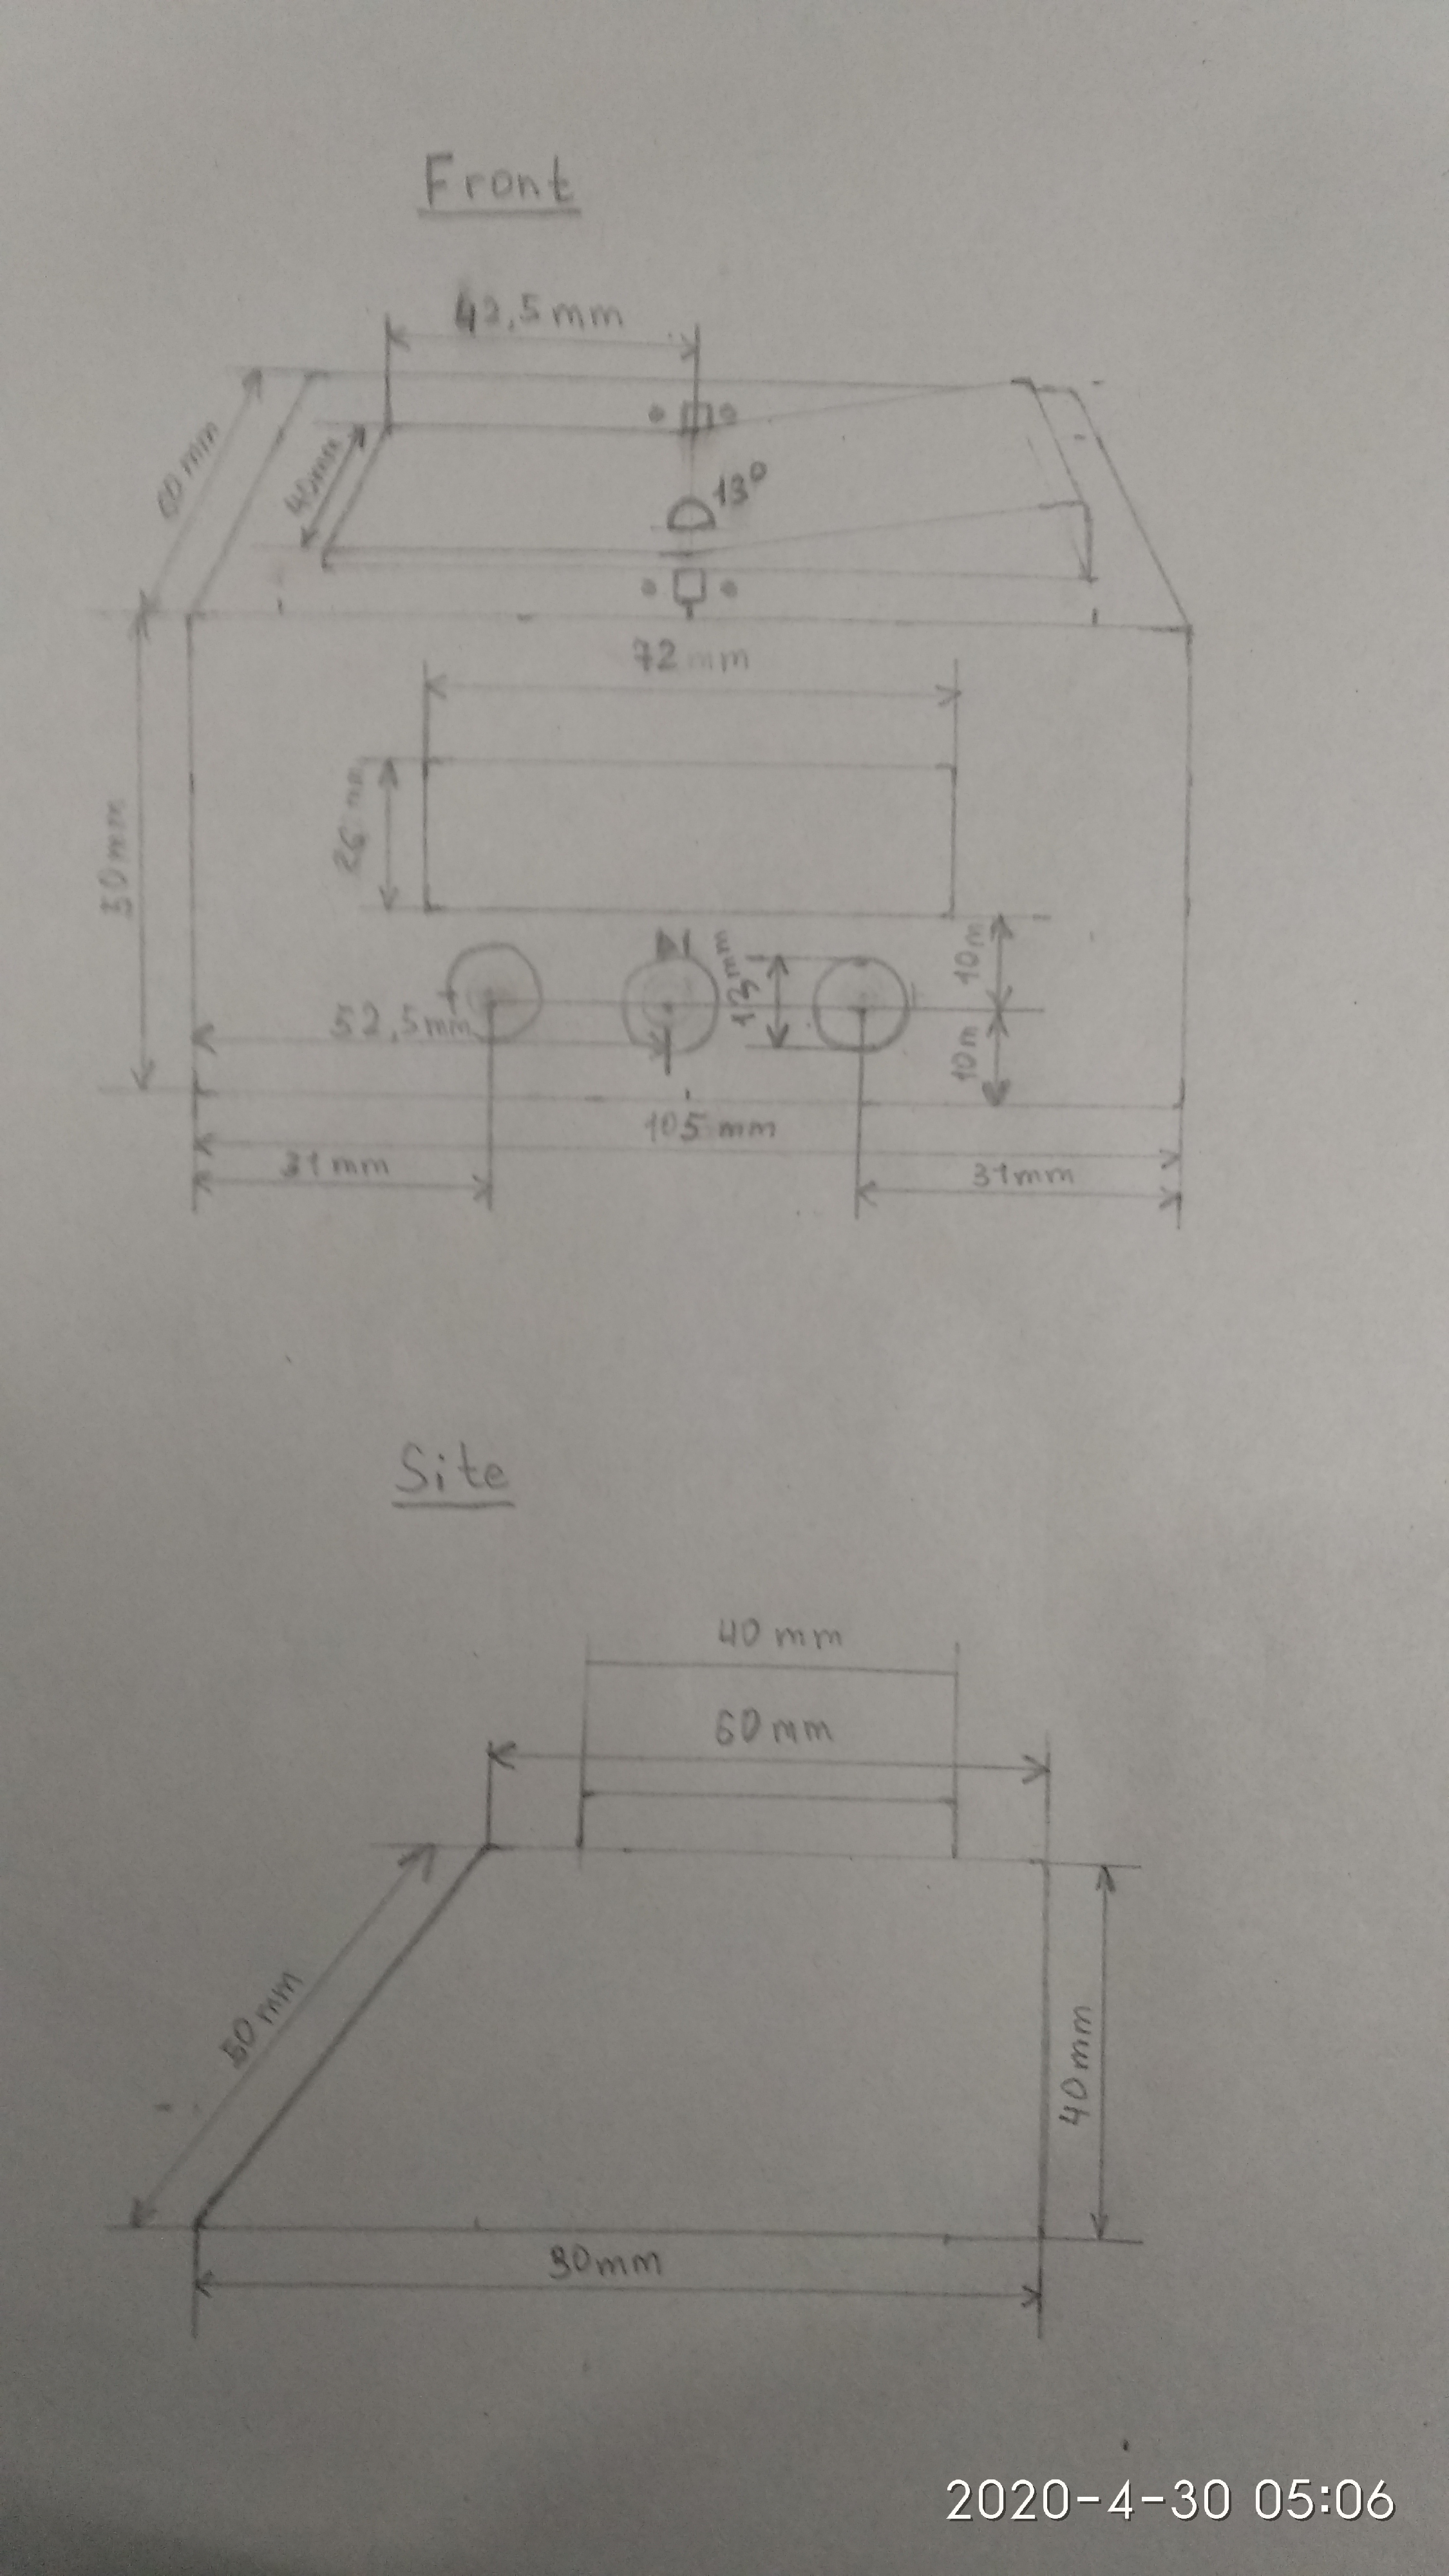 Front
42,5 mm
60 mm
40mm
13°
72 mm
26 mm
50mm
13mm
10m
52,5mm
10m
105 mm
31mm
31mm
Site
40 mm
60mm
50mm
40mm
90mm
2020-4-30 05:06